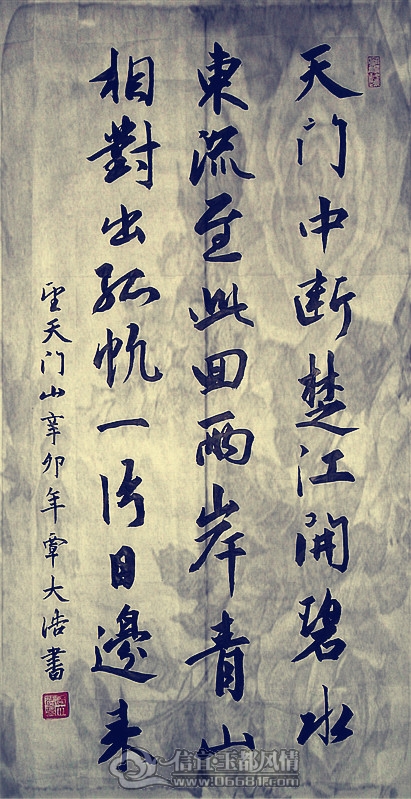 天门中断楚江開碧水
東流至此回兩岸青山
相對出孤帆一片日邊来
望天门山辛卯年覃大浩書
信宜玉都风情